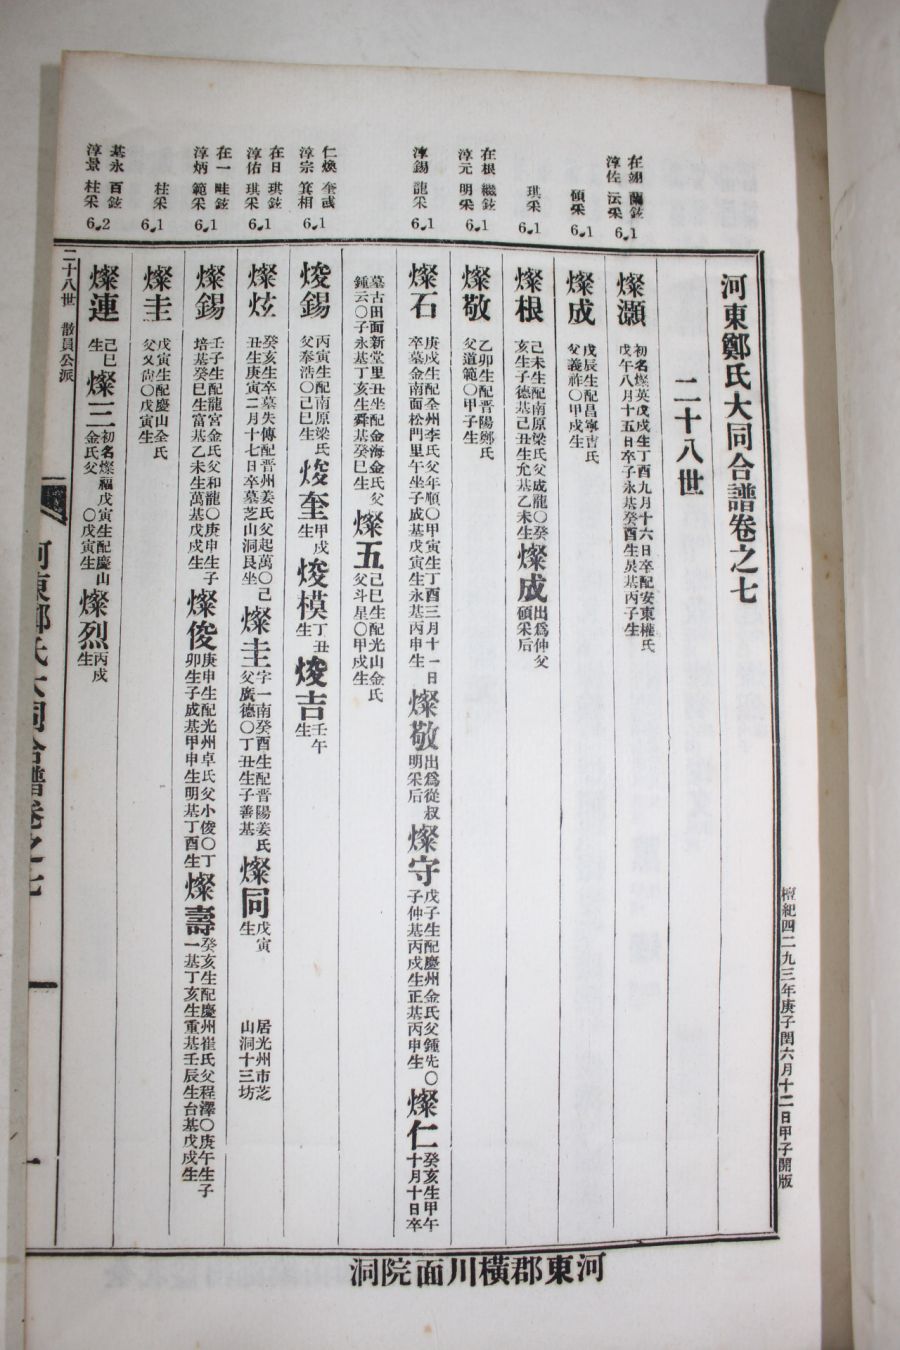 河東鄭氏大同合譜卷之七
檀紀四二九三年庚子閏六月十二日甲子開版
二十八世
在翊 蘭鉉
淳佐 沄采
6.1
燦灝 初名燦英戊戌生丁酉九月十六日卒配安東權氏
戊午八月十五日卒子永基癸酉生昊基丙子生
碩采
6.1
燦成 戊辰生配昌寧吉氏
父義祚〇甲戌生
琪采
6.1
燦根 己未生配南原梁氏父成龍〇癸
亥生子德基己丑生允基乙未生
燦成 出爲仲父
碩采后
在根 繼鉉
淳元 明采
6.1
燦敬 乙卯生配晋陽鄭氏
父道範〇甲子生
淳錫 龍采
6.1
燦石 庚戌生配全州李氏父年順〇甲寅生丁酉三月十一日
卒墓金南面松門里午坐子成基戊寅生永基丙申生
燦敬 出爲從叔
明采后
燦守 戊子生配慶州金氏父鍾先〇
子仲基丙戌生正基丙申生
燦仁 癸亥生甲午
十月十日卒
墓古田面新堂里丑坐配金海金氏父
鍾云〇子永基丁亥生舜基癸巳生
燦五 己巳生配光山金氏
父斗星〇甲戌生
仁煥 奎彧
淳宗 箕相
6.1
焌錫 丙寅生配南原梁氏
父奉浩〇己巳生
焌奎 甲戌
生
焌模 丁丑
生
焌吉 壬午
生
在日 琪鉉
淳佑 琪采
6.1
燦炫 癸亥生卒墓失傳配晋州姜氏父起萬〇己
丑生庚寅二月十七日卒墓芝山洞艮坐
燦圭 字一南癸酉生配晋陽姜氏
父廣德〇丁丑生子善基
燦同 戊寅
生
居光州市芝
山洞十三坊
在一 畦鉉
淳炳 範采
6.1
燦錫 壬子生配龍宮金氏父和龍〇庚申生子
培基癸巳生富基乙未生萬基戊戌生
燦俊 庚申生配光州卓氏父小俊〇丁
卯生子成基甲申生明基丁酉生
燦壽 癸亥生配慶州崔氏父程澤〇庚午生子
一基丁亥生重基壬辰生台基戊戌生
柱采
6.1
燦圭 戊寅生配慶山全氏
父又尙〇戊寅生
基永 百鉉
淳景 柱采
6.2
燦連 己巳
生
燦三 初名燦福戊寅生配慶山
金氏父 〇戊寅生
燦烈 丙戌
生
二十八世 散員公派
河東鄭氏大同合譜卷之七
一
河東郡横川面院洞